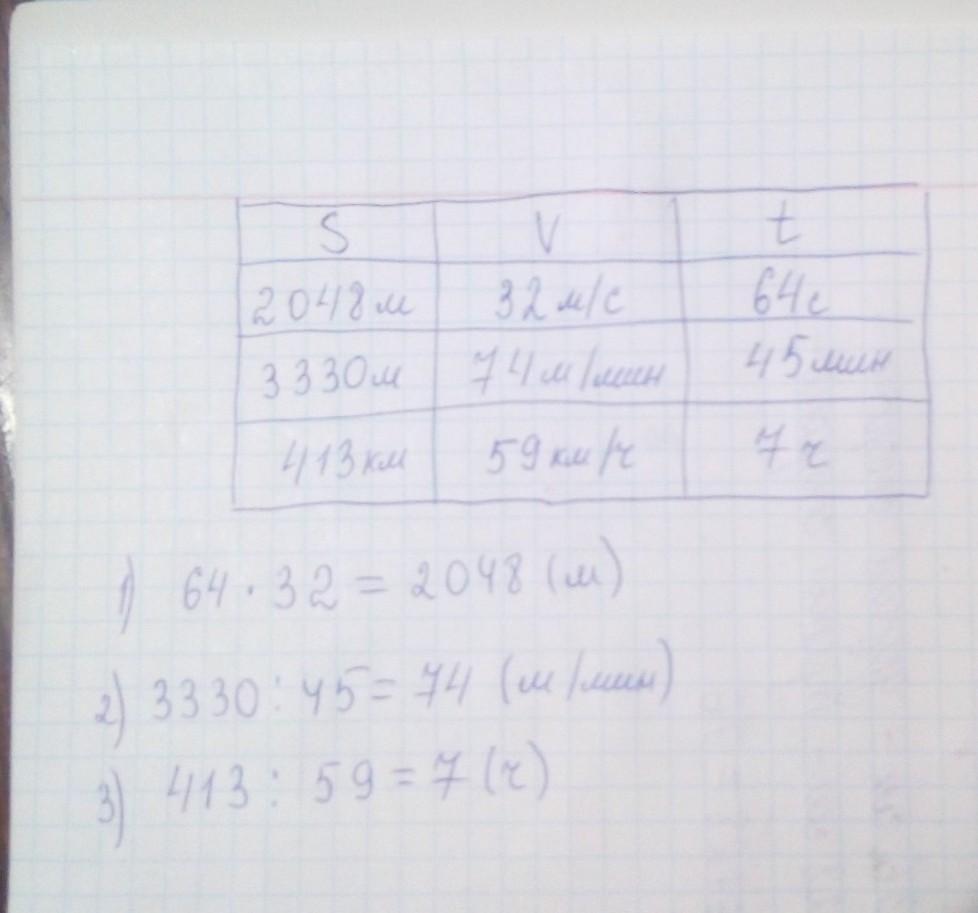 S V t
2048м 32м/с 64с
3330м 74м/мин 45мин
413км 59км/ч 7ч
1) 64 · 32 = 2048 (м)
2) 3330 : 45 = 74 (м/мин)
3) 413 : 59 = 7 (ч)